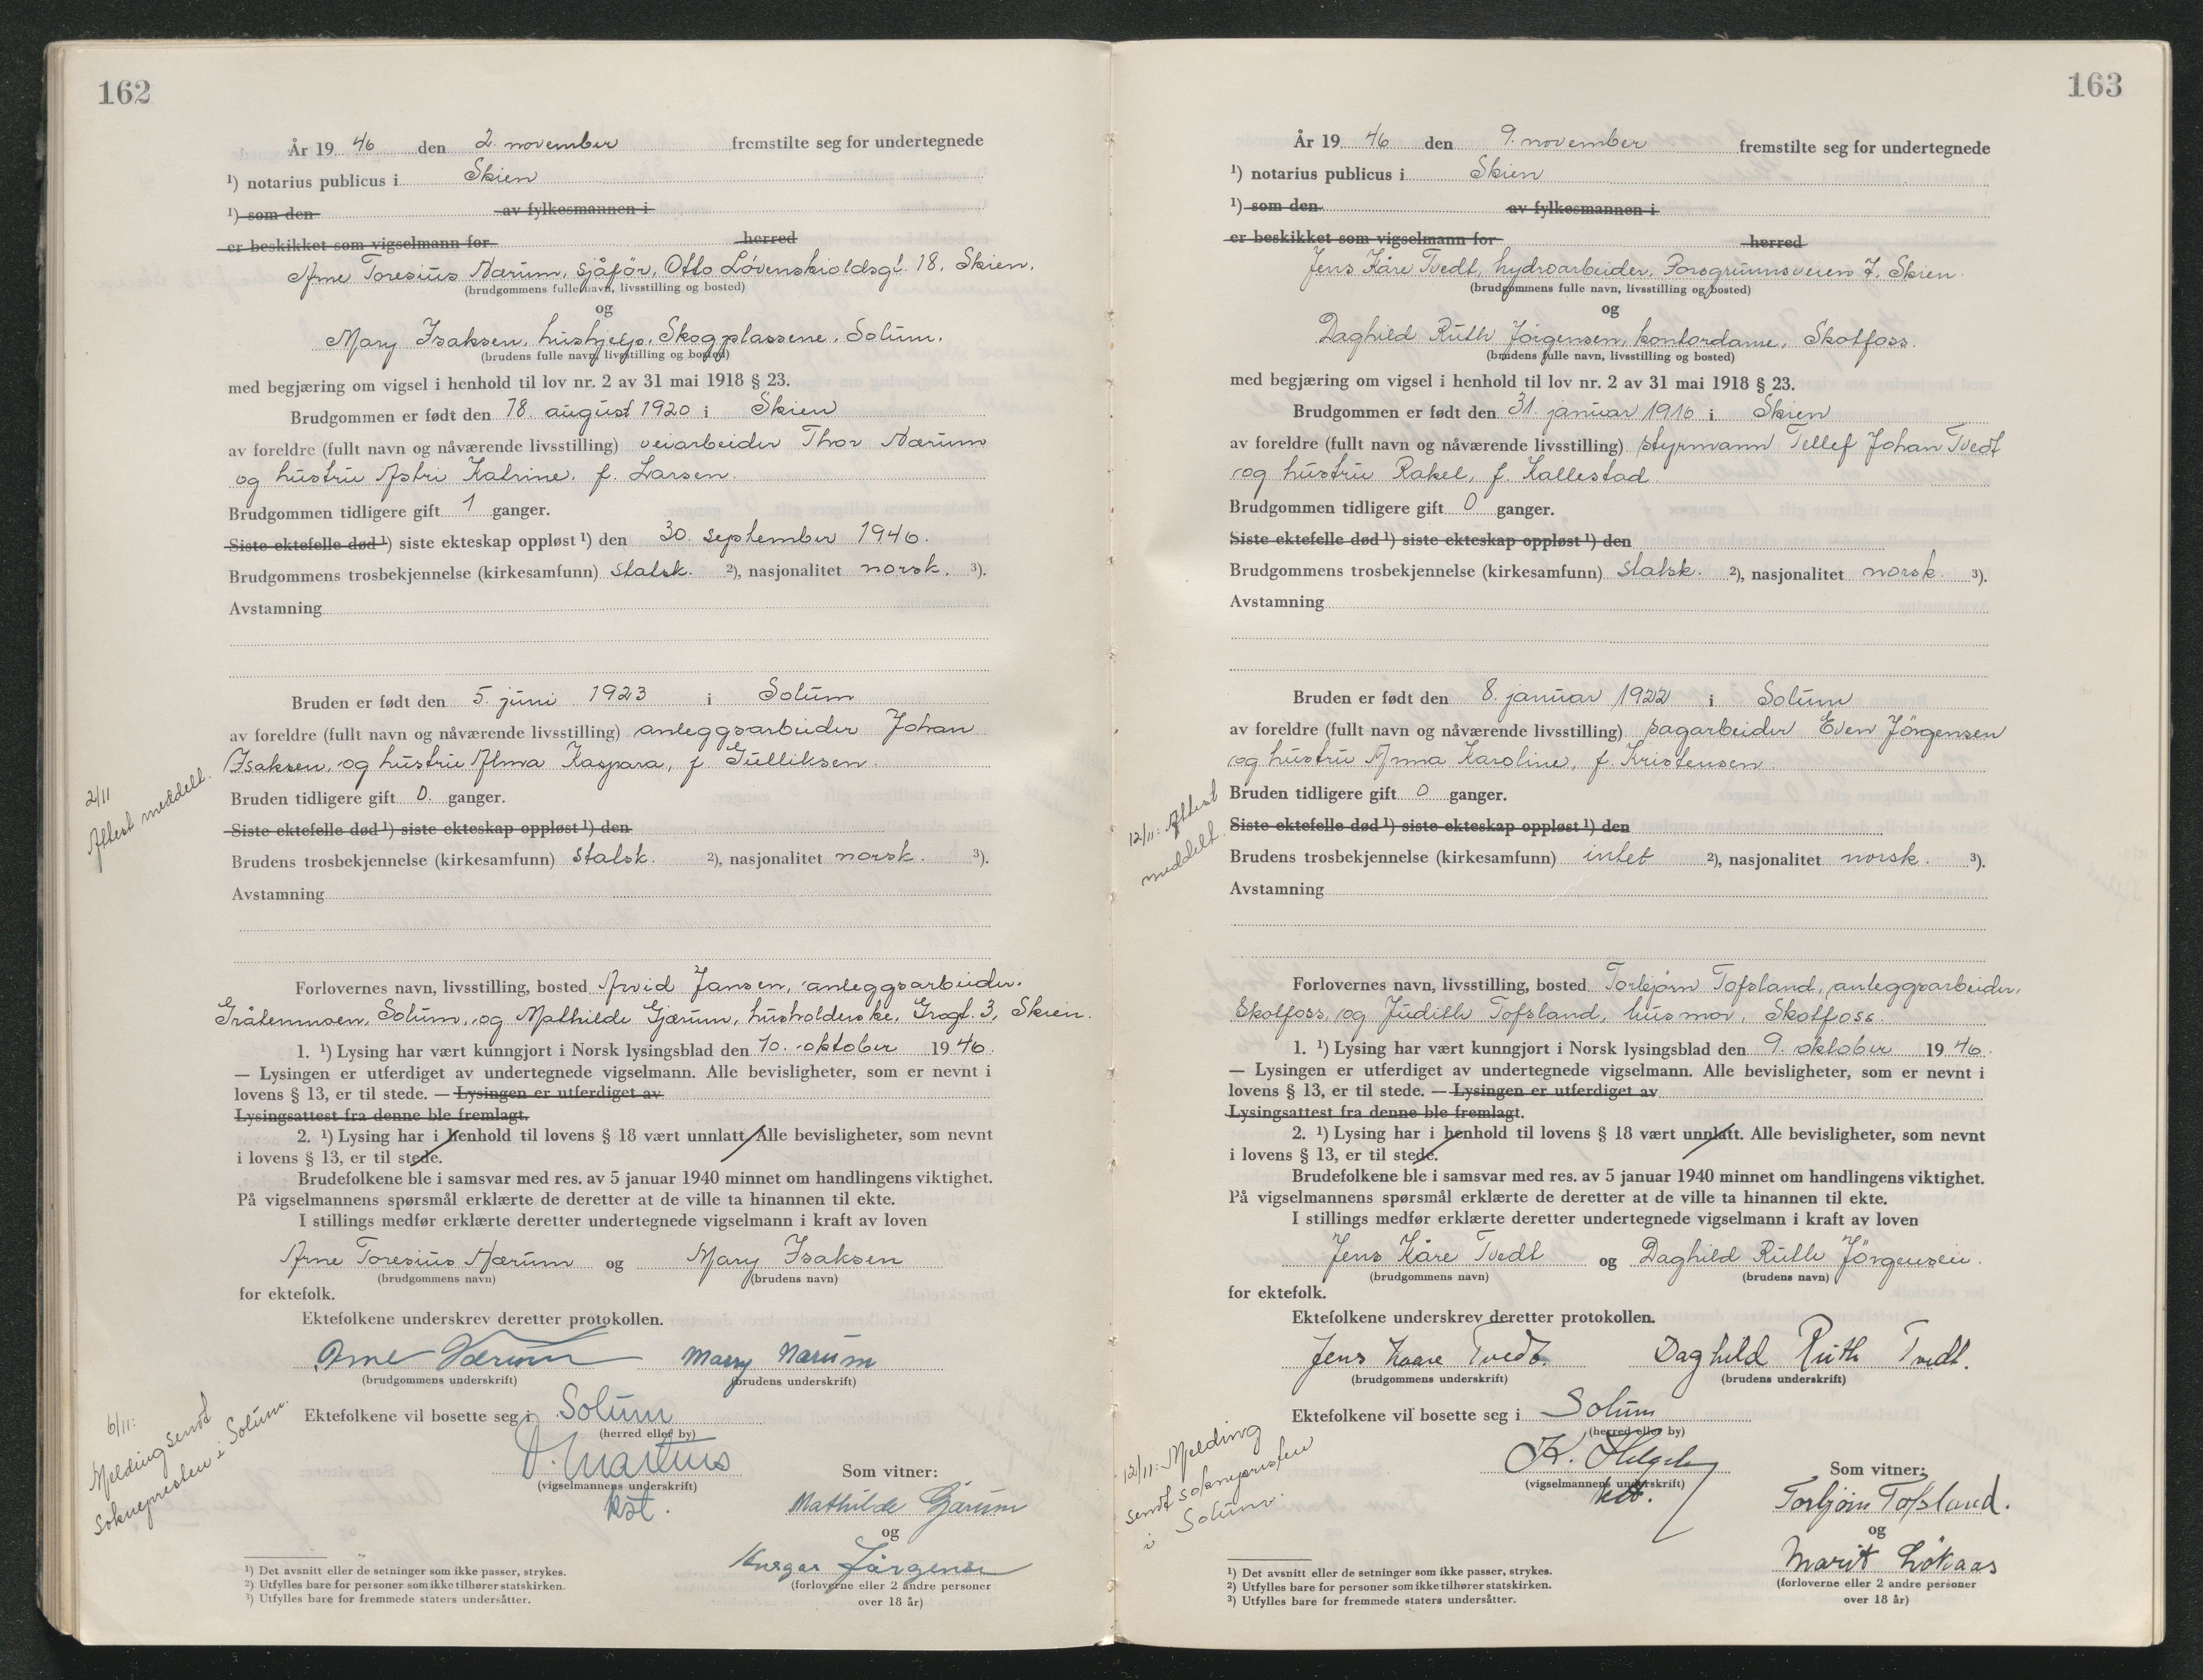 162
År 19 46 den 2. november fremstilte seg for undertegnede
¹) notarius publicus i Skien
¹) som den av fylkesmannen i
er beskikket som vigselmann for herred
Arne Toresius Nærum, sjåför, Otto Løvenskioldsgt. 18, Skien.
(brudgommens fulle navn, livsstilling og bosted)
og
Mary Isaksen, hushjelp, Skogplassene, Solum.
(brudens fulle navn, livsstilling og bosted)
med begjæring om vigsel i henhold til lov nr. 2 av 31 mai 1918 § 23.
Brudgommen er født den 18. august 1920 i Skien
av foreldre (fullt navn og nåværende livsstilling) veiarbeider Thor Nærum
og hustru Astri Katrine, f. Larsen.
Brudgommen tidligere gift 1 ganger.
Siste ektefelle død ¹) siste ekteskap oppløst ¹) den 30. september 1946.
Brudgommens trosbekjennelse (kirkesamfunn) statsk. ²), nasjonalitet norsk. ³).
Avstamning
Bruden er født den 5. juni 1923 i Solum
av foreldre (fullt navn og nåværende livsstilling) anleggsarbeider Johan
Isaksen, og hustru Alma Kaspara, f. Gulliksen.
2/11
Attest meddelt.
Bruden tidligere gift 0. ganger.
Siste ektefelle død ¹) siste ekteskap oppløst ¹) den
Brudens trosbekjennelse (kirkesamfunn) statsk. ²), nasjonalitet norsk. ³).
Avstamning
Forlovernes navn, livsstilling, bosted Arvid Jansen, anleggsarbeider.
Gråtenmoen, Solum, og Mathilde Gjærum, husholderske, Grogt. 3, Skien.
1. ¹) Lysing har vært kunngjort i Norsk lysingsblad den 10. oktober 19 46.
— Lysingen er utferdiget av undertegnede vigselmann. Alle bevisligheter, som er nevnt i
lovens § 13, er til stede. — Lysingen er utferdiget av
Lysingsattest fra denne ble fremlagt.
2. ¹) Lysing har i henhold til lovens § 18 vært unnlatt. Alle bevisligheter, som nevnt
i lovens § 13, er til stede.
Brudefolkene ble i samsvar med res. av 5 januar 1940 minnet om handlingens viktighet.
På vigselmannens spørsmål erklærte de deretter at de ville ta hinannen til ekte.
I stillings medfør erklærte deretter undertegnede vigselmann i kraft av loven
Arne Toresius Nærum og Mary Isaksen
(brudgommens navn) (brudens navn)
for ektefolk.
Ektefolkene underskrev deretter protokollen.
Arne Nærum Mary Narum
(brudgommens underskrift) (brudens underskrift)
6/11:
Melding sendt
soknepresten i Solum.
Ektefolkene vil bosette seg i Solum
(herred eller by)
(vigselmannens underskrift)
kst.
Som vitner:
Mathilde Gjærum
og
Jørgensen
(forloverne eller 2 andre personer
over 18 år)
¹) Det avsnitt eller de setninger som ikke passer, strykes.
²) Utfylles bare for personer som ikke tilhører statskirken.
³) Utfylles bare for fremmede staters undersåtter.
163
År 19 46 den 9. november fremstilte seg for undertegnede
¹) notarius publicus i Skien
¹) som den av fylkesmannen i
er beskikket som vigselmann for herred
Jens Kåre Tvedt, hydroarbeider, Porsgrunnsveien 7, Skien.
(brudgommens fulle navn, livsstilling og bosted)
og
Daghild Ruth Jörgensen, kontordame, Skotfoss.
(brudens fulle navn, livsstilling og bosted)
med begjæring om vigsel i henhold til lov nr. 2 av 31 mai 1918 § 23.
Brudgommen er født den 31. januar 1916 i Skien
av foreldre (fullt navn og nåværende livsstilling) styrmann Tellef Johan Tvedt
og hustru Rakel, f. Kallestad.
Brudgommen tidligere gift 0 ganger.
Siste ektefelle død ¹) siste ekteskap oppløst ¹) den
Brudgommens trosbekjennelse (kirkesamfunn) statsk. ²), nasjonalitet norsk. ³).
Avstamning
Bruden er født den 8. januar 1922 i Solum
av foreldre (fullt navn og nåværende livsstilling) sagarbeider Even Jörgensen
og hustru Anna Karoline, f. Kristensen.
12/11: Attest
meddelt.
Bruden tidligere gift 0 ganger.
Siste ektefelle død ¹) siste ekteskap oppløst ¹) den
Brudens trosbekjennelse (kirkesamfunn) intet ²), nasjonalitet norsk. ³).
Avstamning
Forlovernes navn, livsstilling, bosted Torbjørn Tofsland, anleggsarbeider,
Skotfoss, og Judith Tofsland, husmor, Skotfoss.
1. ¹) Lysing har vært kunngjort i Norsk lysingsblad den 9. oktober 19 46.
— Lysingen er utferdiget av undertegnede vigselmann. Alle bevisligheter, som er nevnt i
lovens § 13, er til stede. — Lysingen er utferdiget av
Lysingsattest fra denne ble fremlagt.
2. ¹) Lysing har i henhold til lovens § 18 vært unnlatt. Alle bevisligheter, som nevnt
i lovens § 13, er til stede.
Brudefolkene ble i samsvar med res. av 5 januar 1940 minnet om handlingens viktighet.
På vigselmannens spørsmål erklærte de deretter at de ville ta hinannen til ekte.
I stillings medfør erklærte deretter undertegnede vigselmann i kraft av loven
Jens Kåre Tvedt og Daghild Ruth Jörgensen.
(brudgommens navn) (brudens navn)
for ektefolk.
Ektefolkene underskrev deretter protokollen.
Jens Kaare Tvedt. Daghild Ruth Tvedt.
(brudgommens underskrift) (brudens underskrift)
12/11: Melding
sendt soknepresten
i Solum.
Ektefolkene vil bosette seg i Solum
(herred eller by)
(vigselmannens underskrift)
Som vitner:
Torbjørn Tofsland.
og
Marit Løkaas
(forloverne eller 2 andre personer
over 18 år)
¹) Det avsnitt eller de setninger som ikke passer, strykes.
²) Utfylles bare for personer som ikke tilhører statskirken.
³) Utfylles bare for fremmede staters undersåtter.